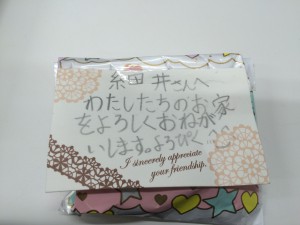 細井さんへ
わたしたちのお家
をよろしくおねが
いします。よろぴく
I sincerely appreciate
your friendship.